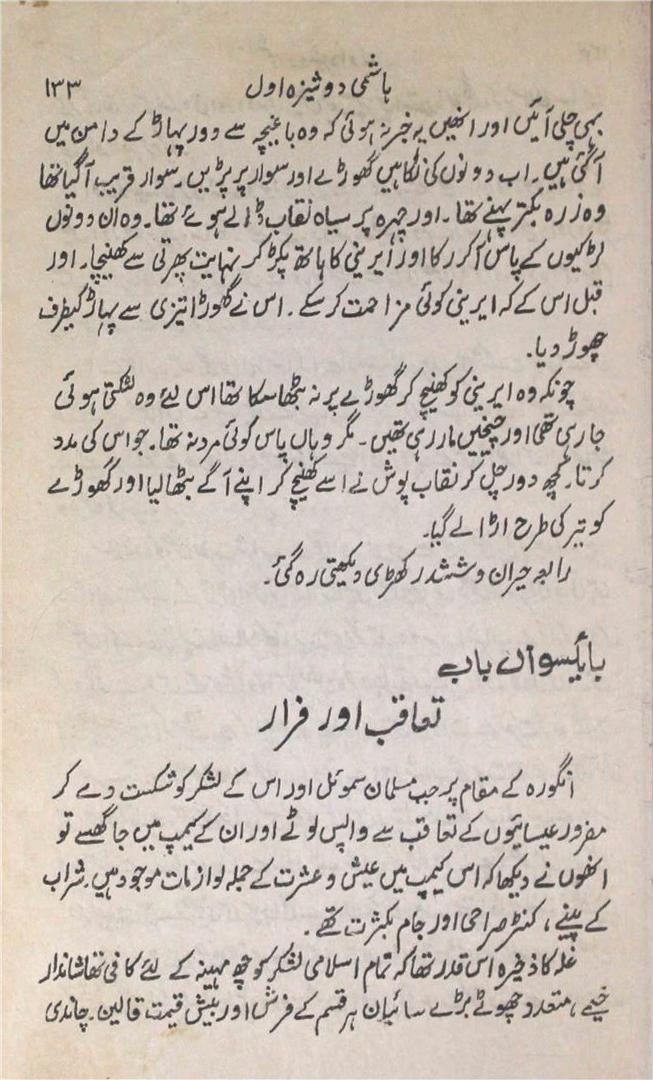 ہاشمی دوشیزہ اول ۱۳۳
بھی چلی آئیں اور انھیں یہ خبر نہ ہوئی کہ وہ باغیچہ سے دور پہاڑ کے دامن میں
آ گئی ہیں۔ اب دونوں کی نگاہیں گھوڑے اور سوار پر پڑیں۔ سوار قریب آ گیا تھا
وہ زرہ بکتر پہنے تھا۔ اور چہرہ پر سیاہ نقاب ڈالے ہوئے تھا۔ وہ ان دونوں
لڑکیوں کے پاس آ کر رکا اور ایرینی کا ہاتھ پکڑ کر نہایت پھرتی سے کھینچا۔ اور
قبل اس کے کہ ایرینی کوئی مزاحمت کر سکے۔ اس نے گھوڑا تیزی سے پہاڑ کیطرف
چھوڑ دیا۔
چونکہ وہ ایرینی کو کھینچ کر گھوڑے پر نہ بٹھا سکا تھا اس لئے وہ لٹکتی ہوئی
جا رہی تھی اور چیخیں مار رہی تھیں۔ مگر وہاں پاس کوئی مرد نہ تھا۔ جو اس کی مدد
کرتا۔ کچھ دور چل کر نقاب پوش نے اسے کھینچ کر اپنے آگے بٹھا لیا اور گھوڑے
کو تیر کی طرح اڑا لے گیا۔
رابعہ حیران و ششدر کھڑی دیکھتی رہ گئی۔
بائیسواں باب
تعاقب اور فرار
انگورہ کے مقام پر جب مسلمان سموئل اور اس کے لشکر کو شکست دے کر
مفرور عیسائیوں کے تعاقب سے واپس لوٹے اور ان کے کیمپ میں جا گھسے تو
انھوں نے دیکھا کہ اس کیمپ میں عیش و عشرت کے جملہ لوازمات موجود ہیں۔ شراب
کے پیپے، کنٹر صراحی اور جام بکثرت تھے۔
غلہ کا ذخیرہ اس قدر تھا کہ تمام اسلامی لشکر کو چھ مہینہ کے لئے کافی تھا شاندار
خیمے، متعدد چھوٹے بڑے سائبان ہر قسم کے فرش اور بیش قیمت قالین۔ چاندی